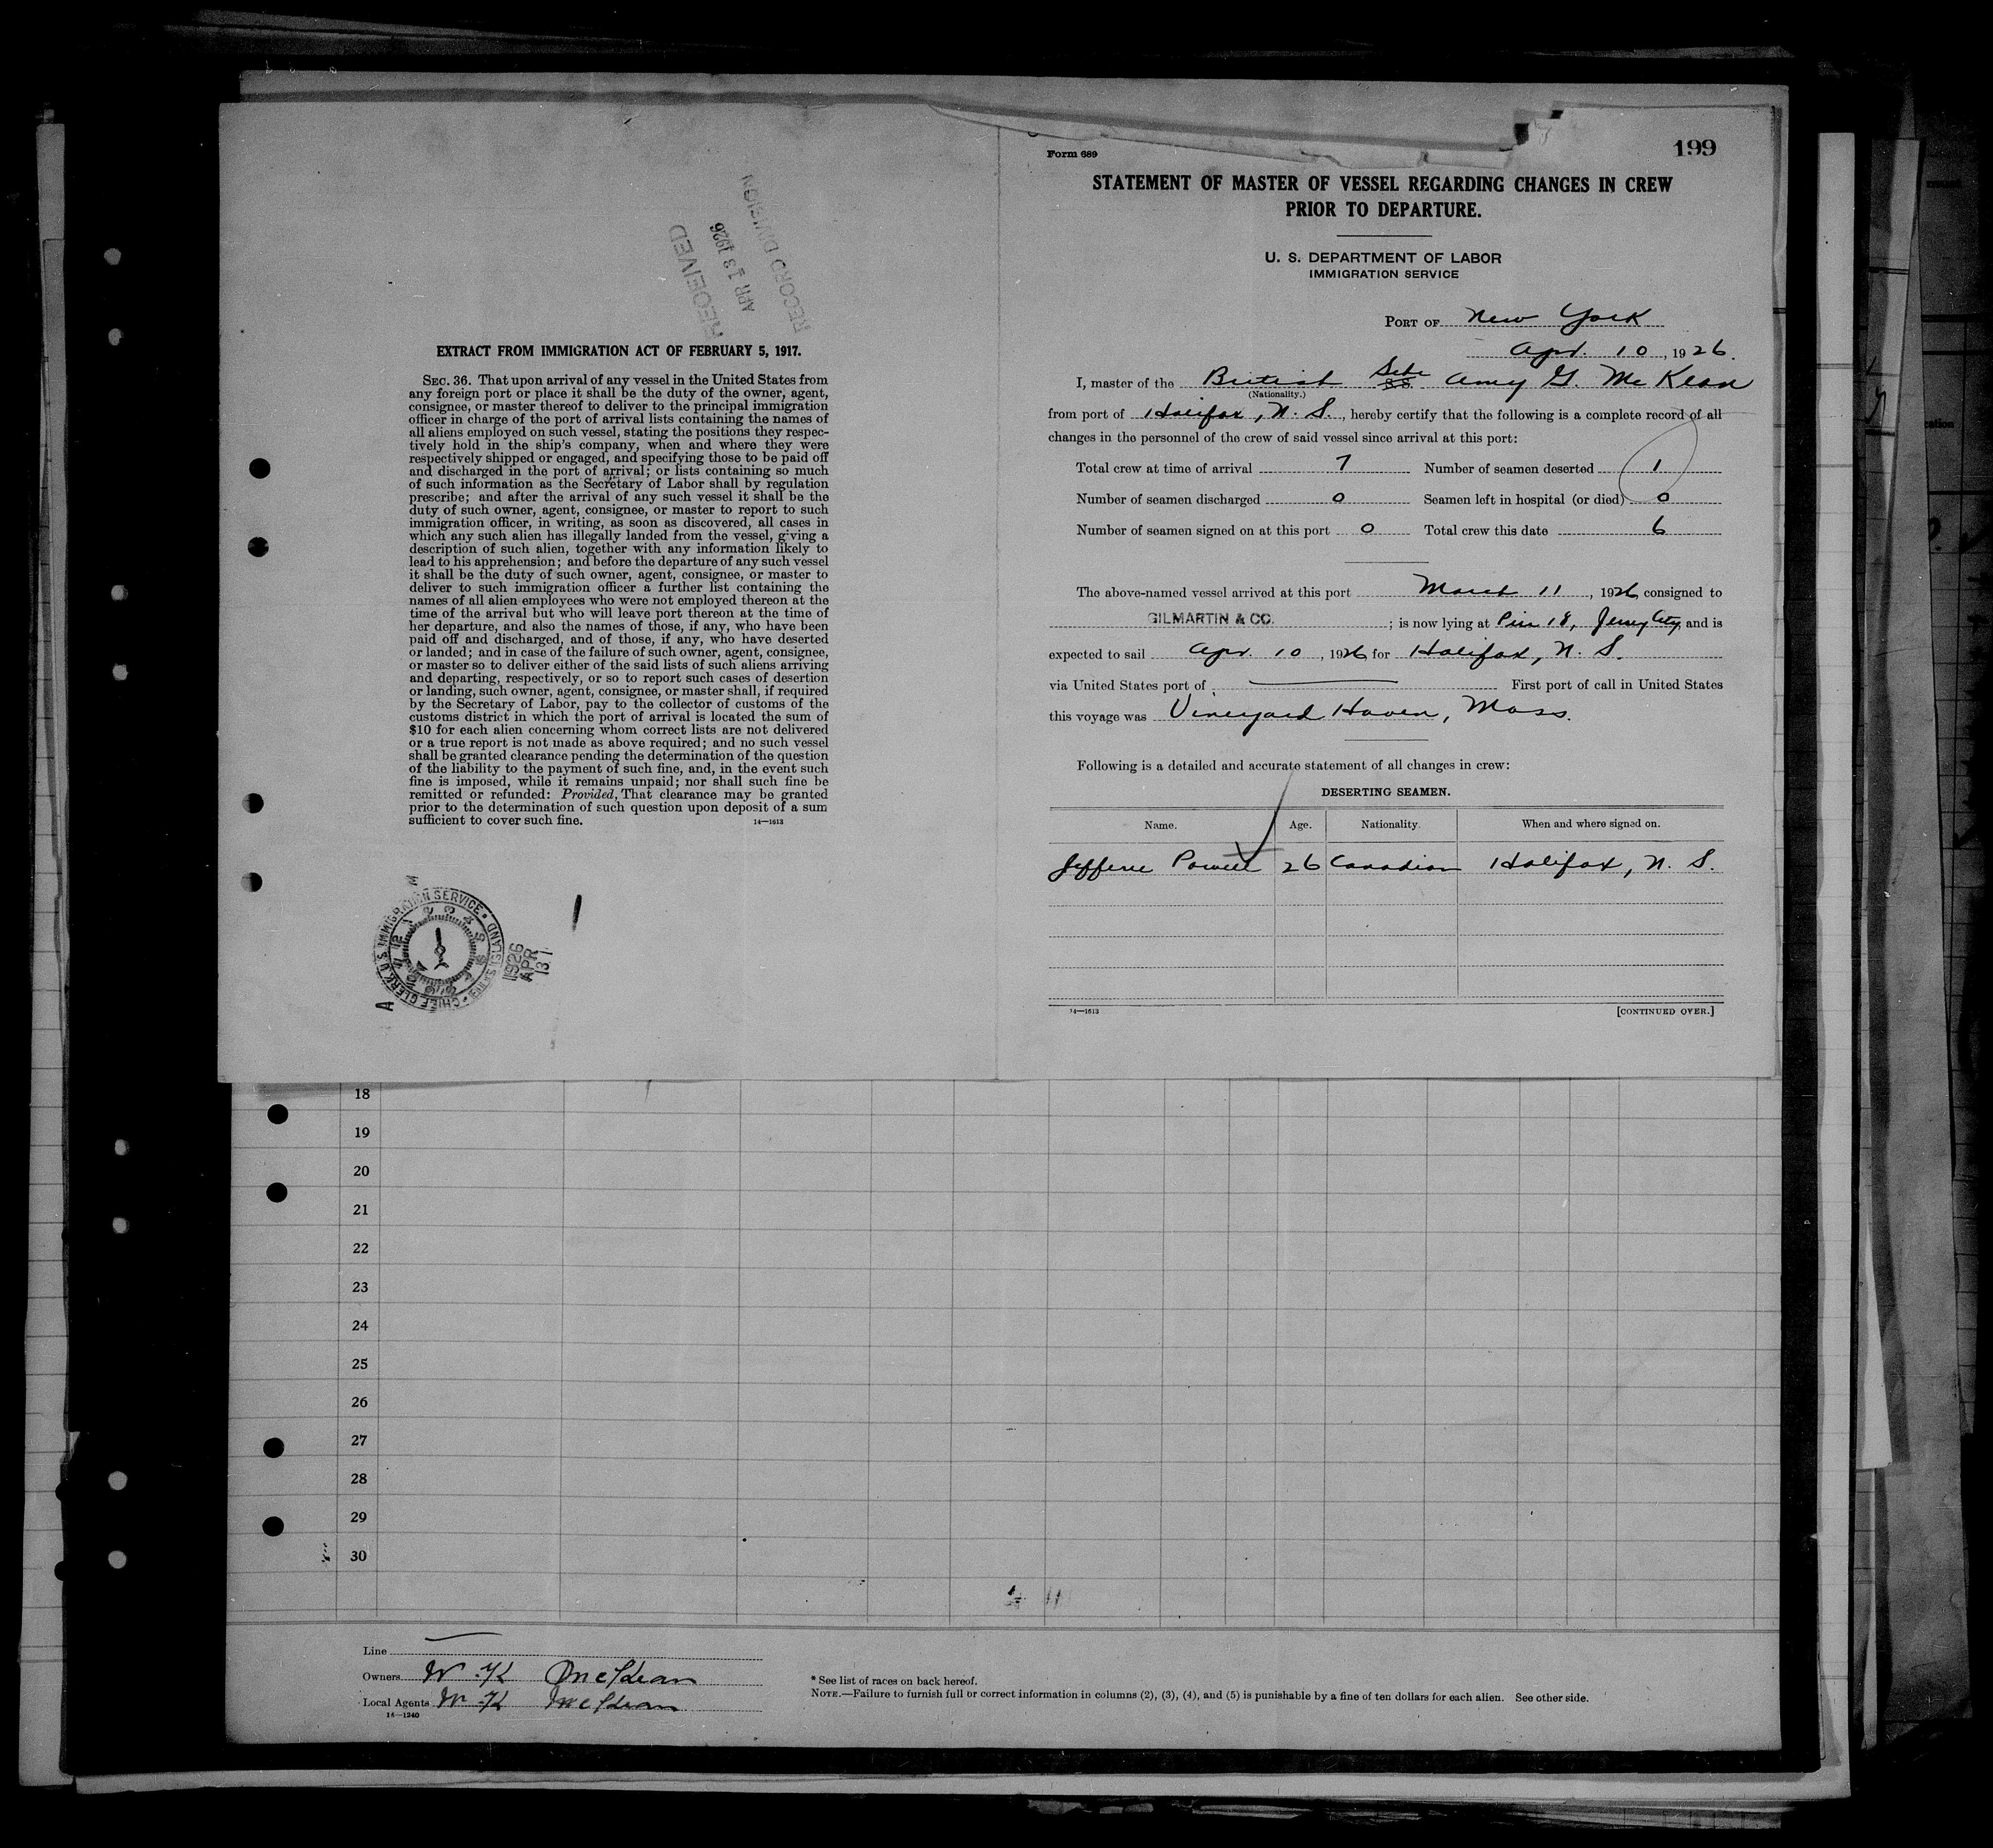 RECEIVED
APR 13 1926
RECORD DIVISION
EXTRACT FROM IMMIGRATION ACT OF FEBRUARY 5, 1917.
SEC. 36. That upon arrival of any vessel in the United States from
any foreign port or place it shall be the duty of the owner, agent,
consignee, or master thereof to deliver to the principal immigration
officer in charge of the port of arrival lists containing the names of
all aliens employed on such vessel, stating the positions they respec-
tively hold in the ship's company, when and where they were
respectively shipped or engaged, and specifying those to be paid off
and discharged in the port of arrival; or lists containing so much
of such information as the Secretary of Labor shall by regulation
prescribe; and after the arrival of any such vessel it shall be the
duty of such owner, agent, consignee, or master to report to such
immigration officer, in writing, as soon as discovered, all cases in
which any such alien has illegally landed from the vessel, giving a
description of such alien, together with any information likely to
lead to his apprehension; and before the departure of any such vessel
it shall be the duty of such owner, agent, consignee, or master to
deliver to such immigration officer a further list containing the
names of all alien employees who were not employed thereon at the
time of the arrival but who will leave port thereon at the time of
her departure, and also the names of those, if any, who have been
paid off and discharged, and of those, if any, who have deserted
or landed; and in case of the failure of such owner, agent, consignee,
or master so to deliver either of the said lists of such aliens arriving
and departing, respectively, or so to report such cases of desertion
or landing, such owner, agent, consignee, or master shall, if required
by the Secretary of Labor, pay to the collector of customs of the
customs district in which the port of arrival is located the sum of
$10 for each alien concerning whom correct lists are not delivered
or a true report is not made as above required; and no such vessel
shall be granted clearance pending the determination of the question
of the liability to the payment of such fine, and, in the event such
fine is imposed, while it remains unpaid; nor shall such fine be
remitted or refunded: Provided, That clearance may be granted
prior to the determination of such question upon deposit of a sum
sufficient to cover such fine. 14—1613
CHIEF CLERK U.S. IMMIGRATION SERVICE ELLIS ISLAND
1926
APR
13
Form 689
199
STATEMENT OF MASTER OF VESSEL REGARDING CHANGES IN CREW
PRIOR TO DEPARTURE.
U. S. DEPARTMENT OF LABOR
IMMIGRATION SERVICE
PORT OF New York
Apr. 10, 1926.
I, master of the British Schr SS. Amy G. McKean
(Nationality.)
from port of Halifax, N. S., hereby certify that the following is a complete record of all
changes in the personnel of the crew of said vessel since arrival at this port:
Total crew at time of arrival 7 Number of seamen deserted 1
Number of seamen discharged 0 Seamen left in hospital (or died) 0
Number of seamen signed on at this port 0 Total crew this date 6
The above-named vessel arrived at this port March 11, 1926, consigned to
GILMARTIN & CO. ; is now lying at Pier 18, Jersey City, and is
expected to sail Apr. 10, 1926, for Halifax, N. S.
via United States port of First port of call in United States
this voyage was Vineyard Haven, Mass.
Following is a detailed and accurate statement of all changes in crew:
DESERTING SEAMEN.
Name. Age. Nationality. When and where signed on.
Powell 26 Canadian Halifax, N. S.
14—1613 [CONTINUED OVER.]
18
19
20
21
22
23
24
25
26
27
28
29
30
Line
Owners W. K McKean
Local Agents W. K McKean
14—1240
* See list of races on back hereof.
NOTE.—Failure to furnish full or correct information in columns (2), (3), (4), and (5) is punishable by a fine of ten dollars for each alien. See other side.